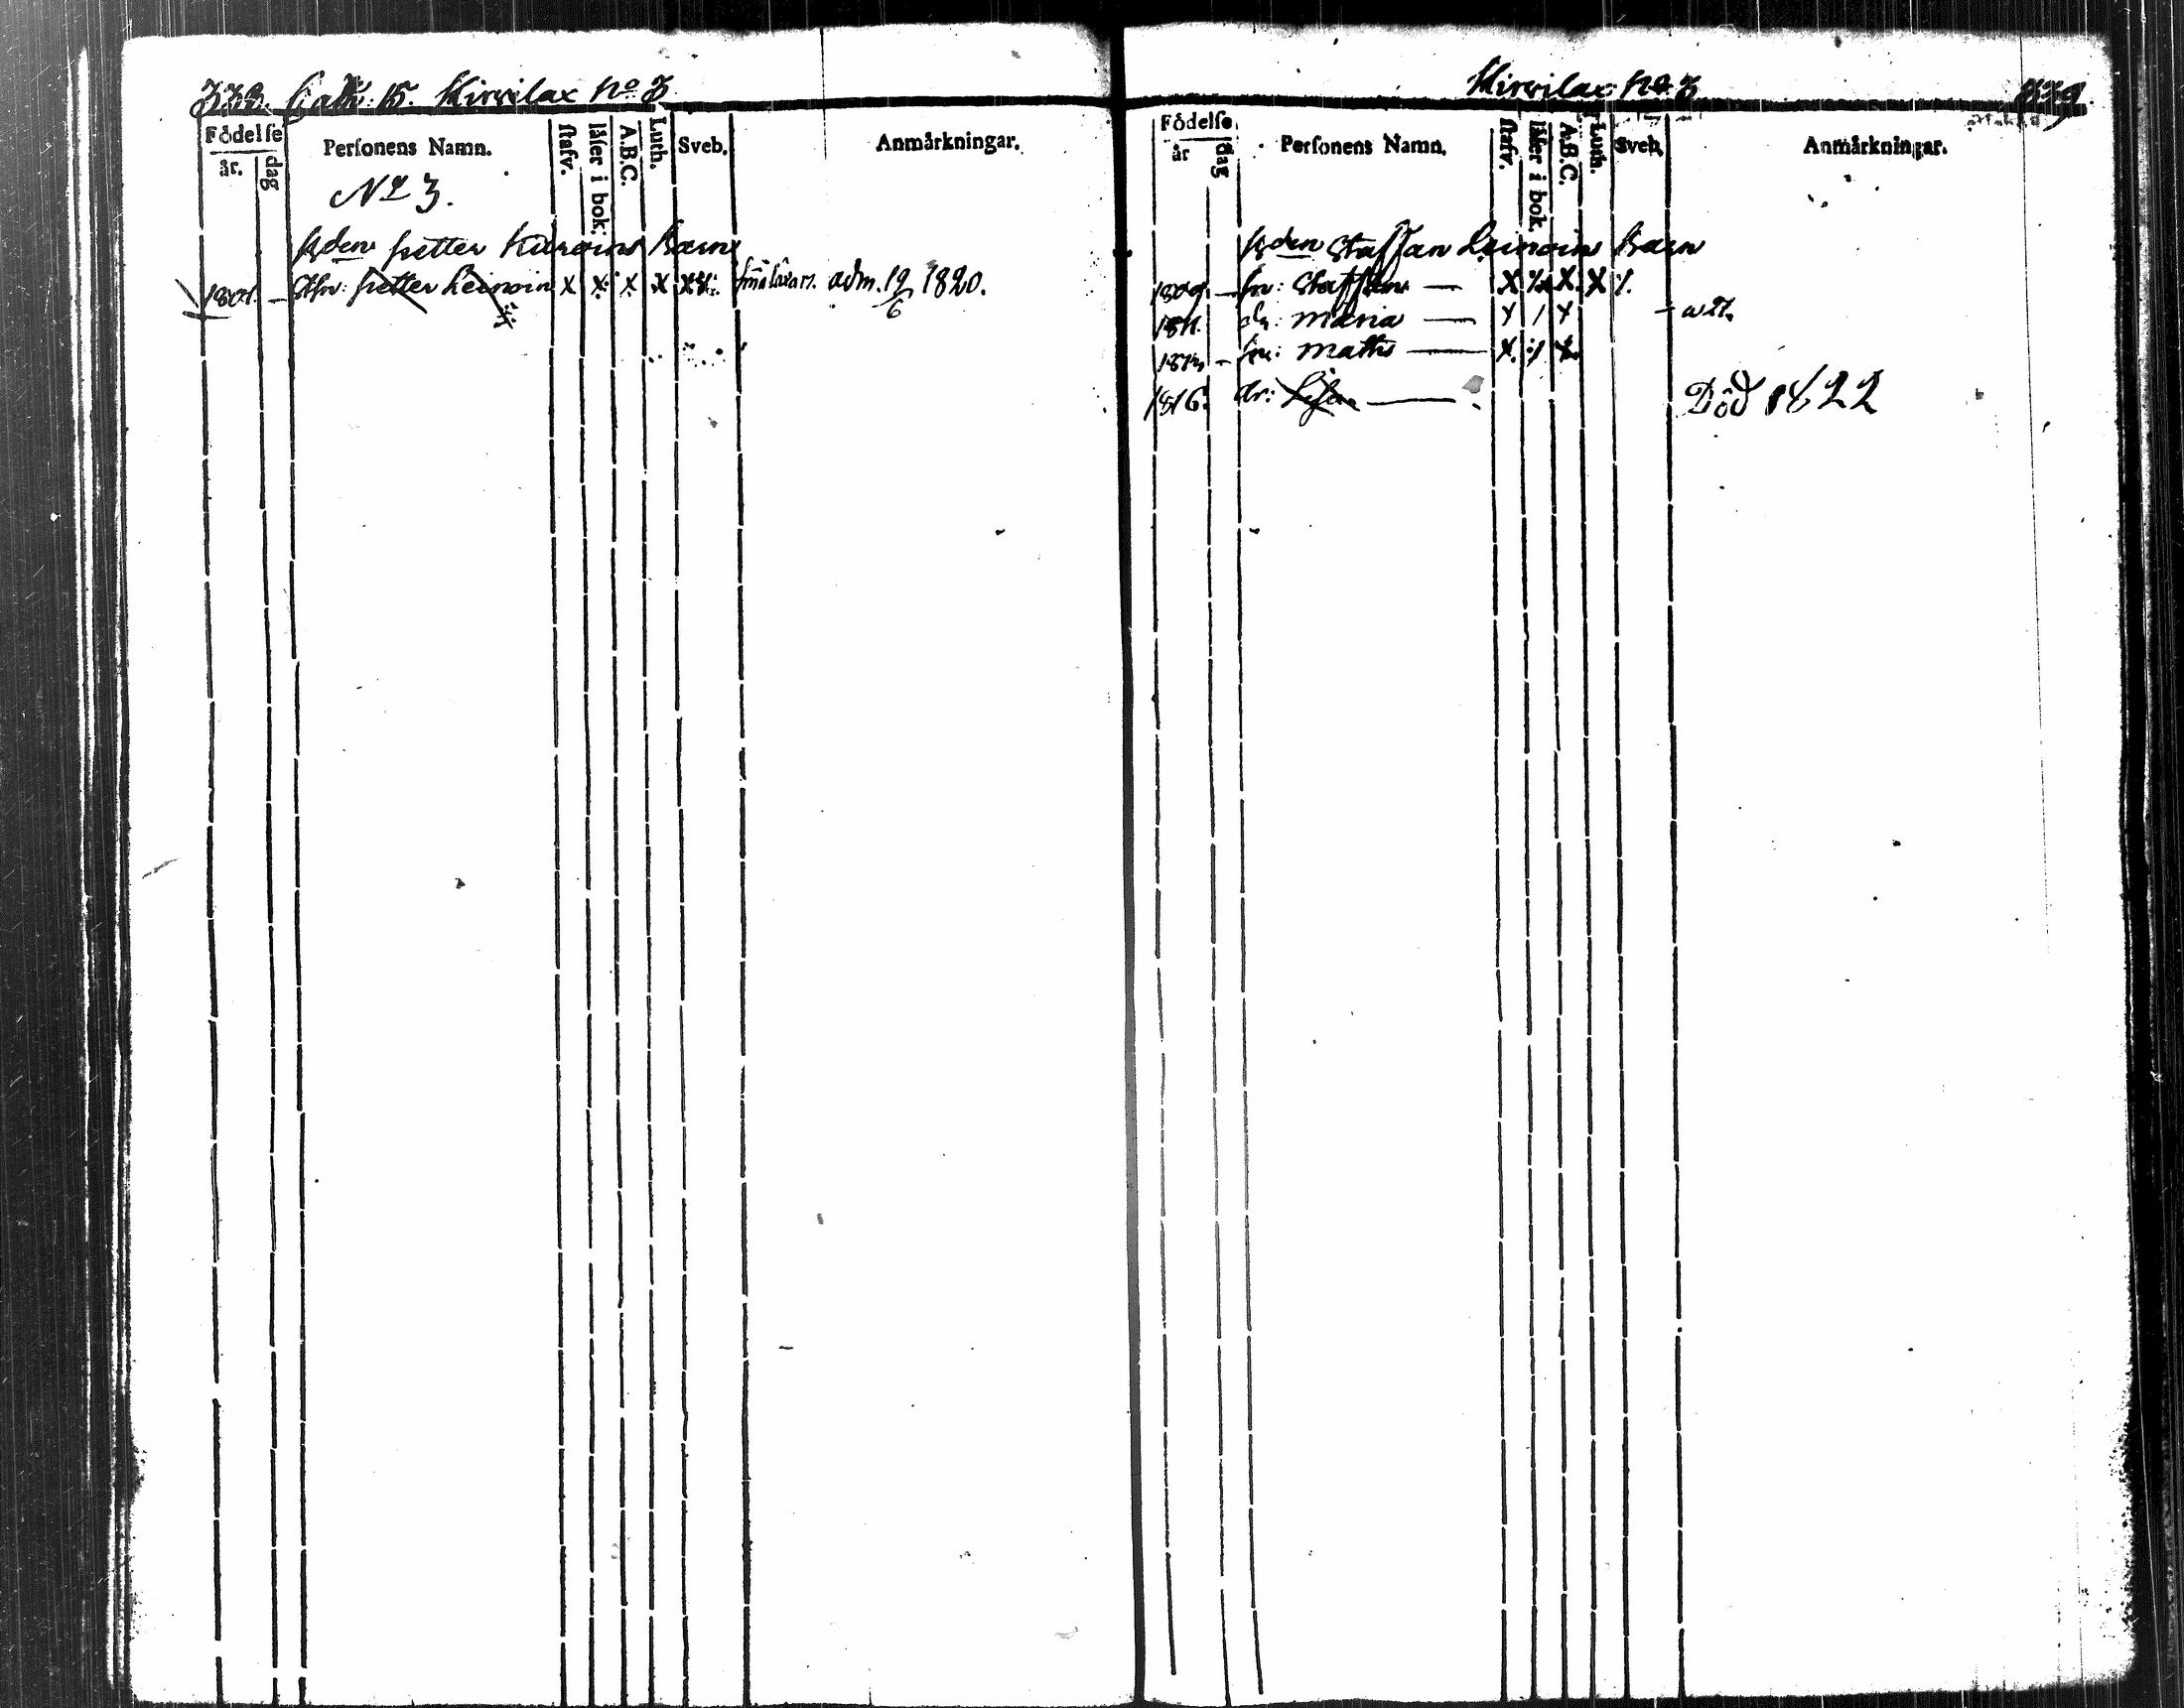 338. Cath: 15. Kirvilax No 3
Födelse
år. dag
Personens Namn.
stafv.
läser i bok.
A.B.C.
Luth.
Sveb.
Anmärkningar.
No 3.
Bden Petter Barn
1801. – Petter Leinoin X X X X adm. 19/6 1820.
Kirvilax No 3 339.
Födelse
år dag
Personens Namn.
stafv.
läser i bok.
A.B.C.
Luth.
Sveb.
Anmärkningar.
Bden Staffan Leinoin Barn
1809. – Sn: Staffan — X X X
1811. dr: Maria — X / X
Sn: Mats — X
1816. dr: Lisa — Död 1822